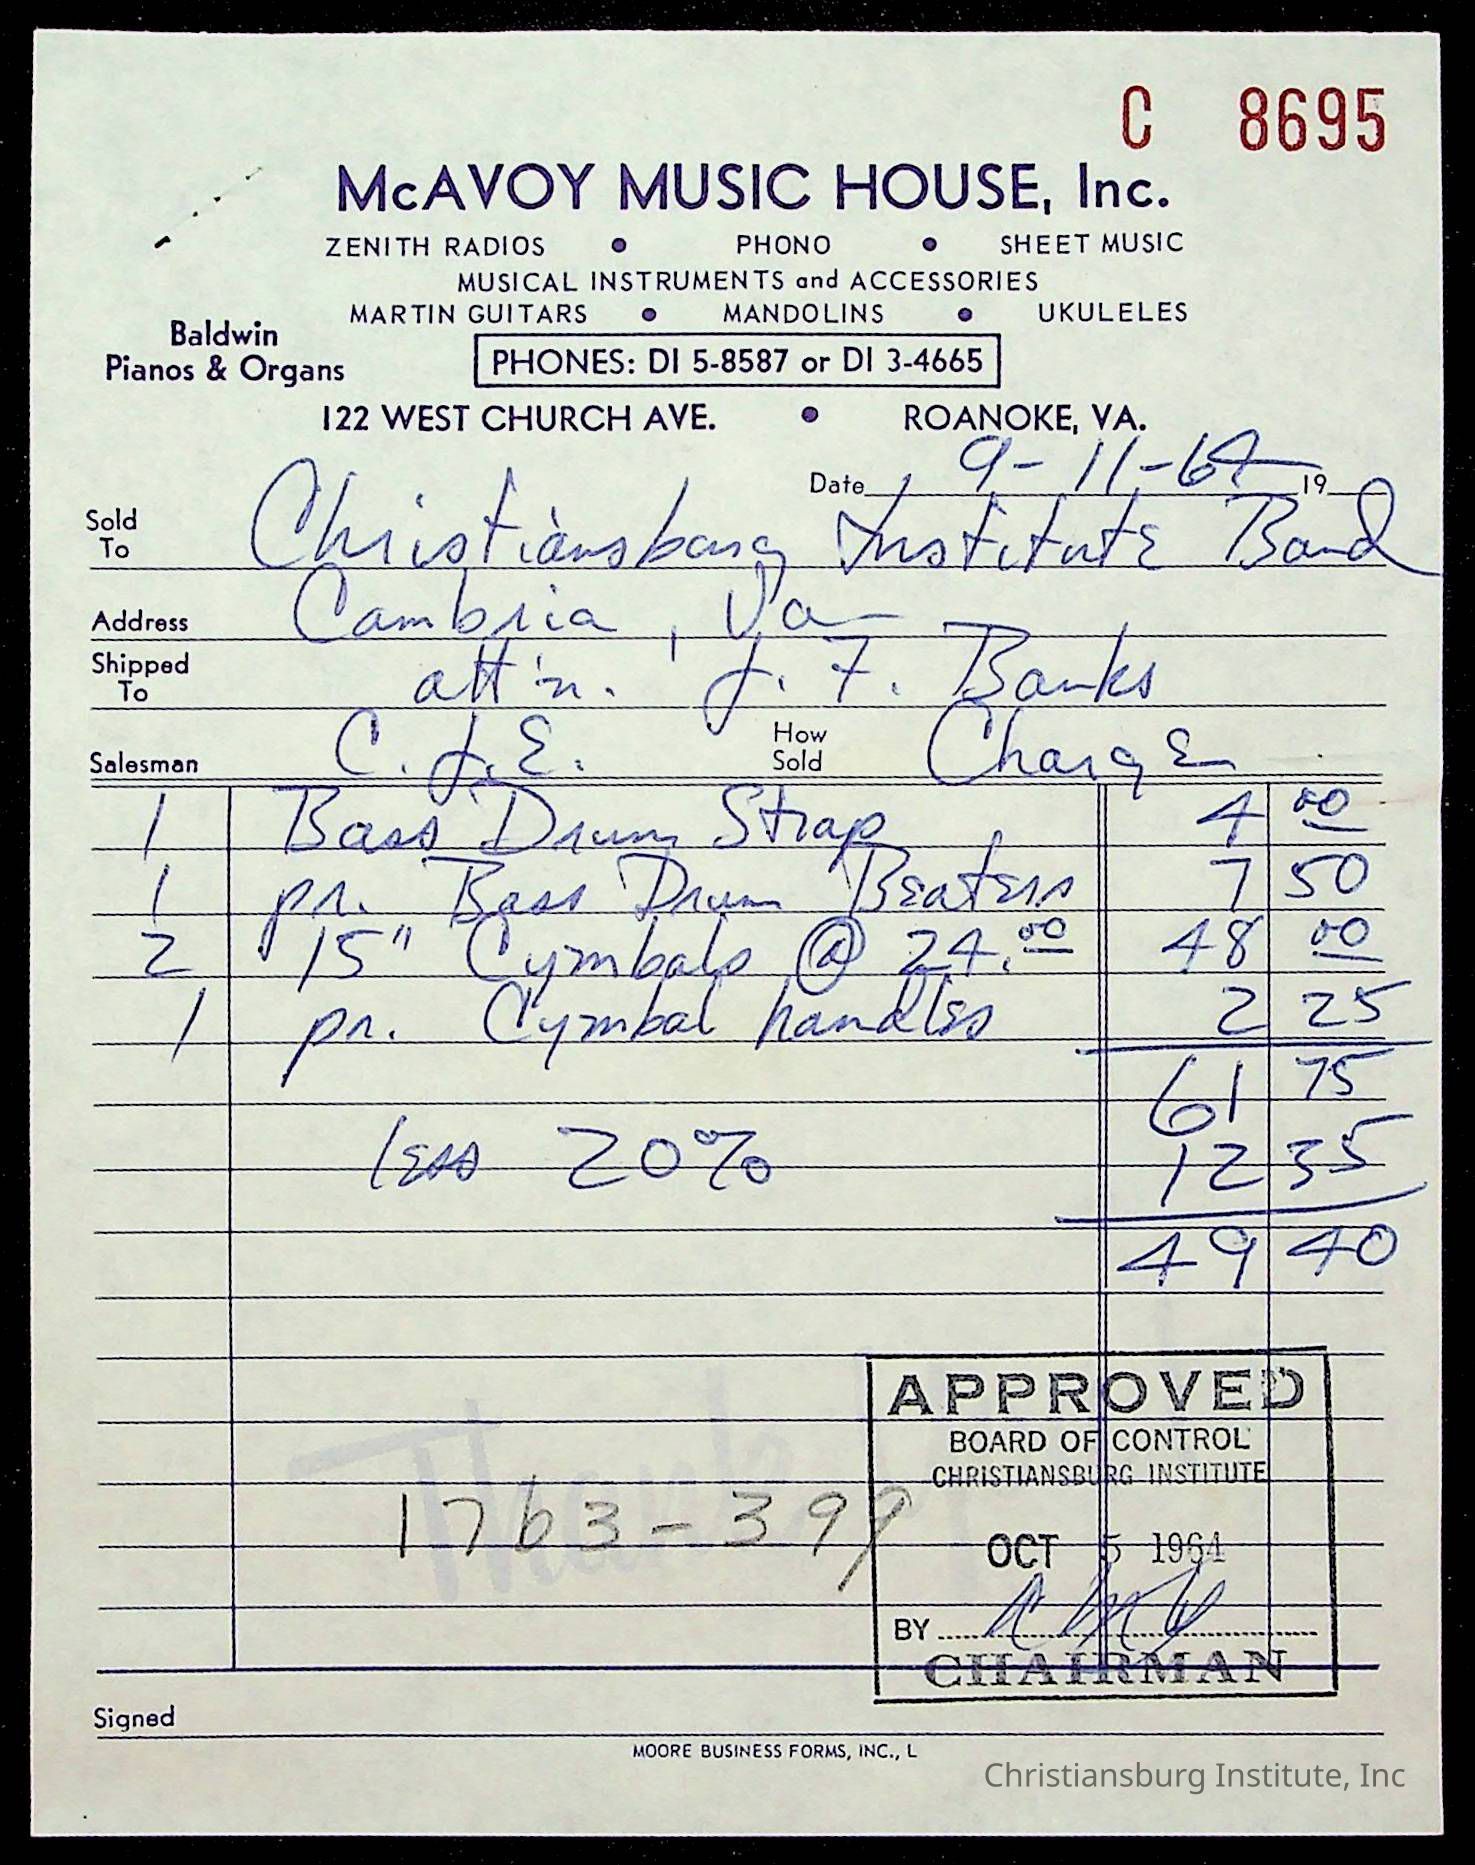 C 8695
McAVOY MUSIC HOUSE, Inc.
ZENITH RADIOS • PHONO • SHEET MUSIC
MUSICAL INSTRUMENTS and ACCESSORIES
MARTIN GUITARS • MANDOLINS • UKULELES
Baldwin
Pianos & Organs
PHONES: DI 5-8587 or DI 3-4665
122 WEST CHURCH AVE. • ROANOKE, VA.
Date 9-11-64 19
Sold To Christiansburg Institute Band
Address Cambria, Va
Shipped To att'n. J. F. Banks
Salesman C. J. E. How Sold Charge
1 Bass Drum Strap 4 00
1 pr. Bass Drum Beaters 7 50
2 15" Cymbals @ 24.00 48 00
1 pr. Cymbal handles 2 25
61 75
less 20% 12 35
49 40
APPROVED
BOARD OF CONTROL
CHRISTIANSBURG INSTITUTE
Thank
1763-399
OCT 5 1964
BY
CHAIRMAN
Signed
MOORE BUSINESS FORMS, INC., L
Christiansburg Institute, Inc